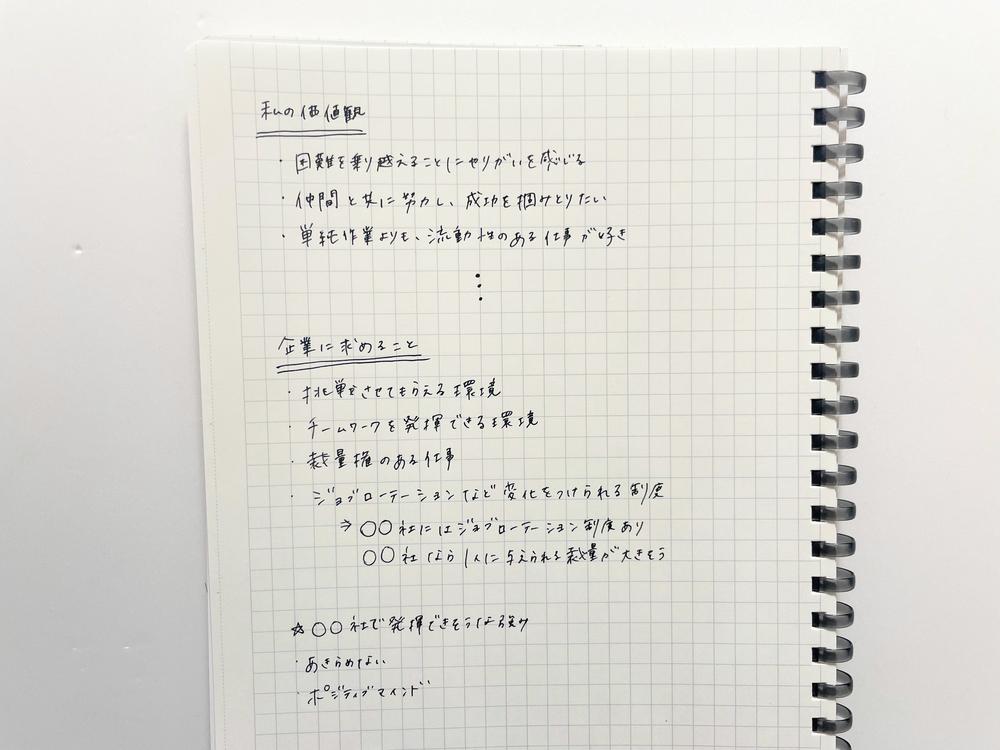 私の価値観
・困難を乗り越えることにやりがいを感じる
・仲間と共に努力し、成功を掴みとりたい
・単純作業よりも、流動性のある仕事が好き
⋮
企業に求めること
・挑戦をさせてもらえる環境
・チームワークを発揮できる環境
・裁量権のある仕事
・ジョブローテーションなど変化をつけられる制度
⇒〇〇社にはジョブローテーション制度あり
〇〇社なら1人に与えられる裁量が大きそう
☆〇〇社で発揮できそうな強み
・あきらめない
・ポジティブマインド